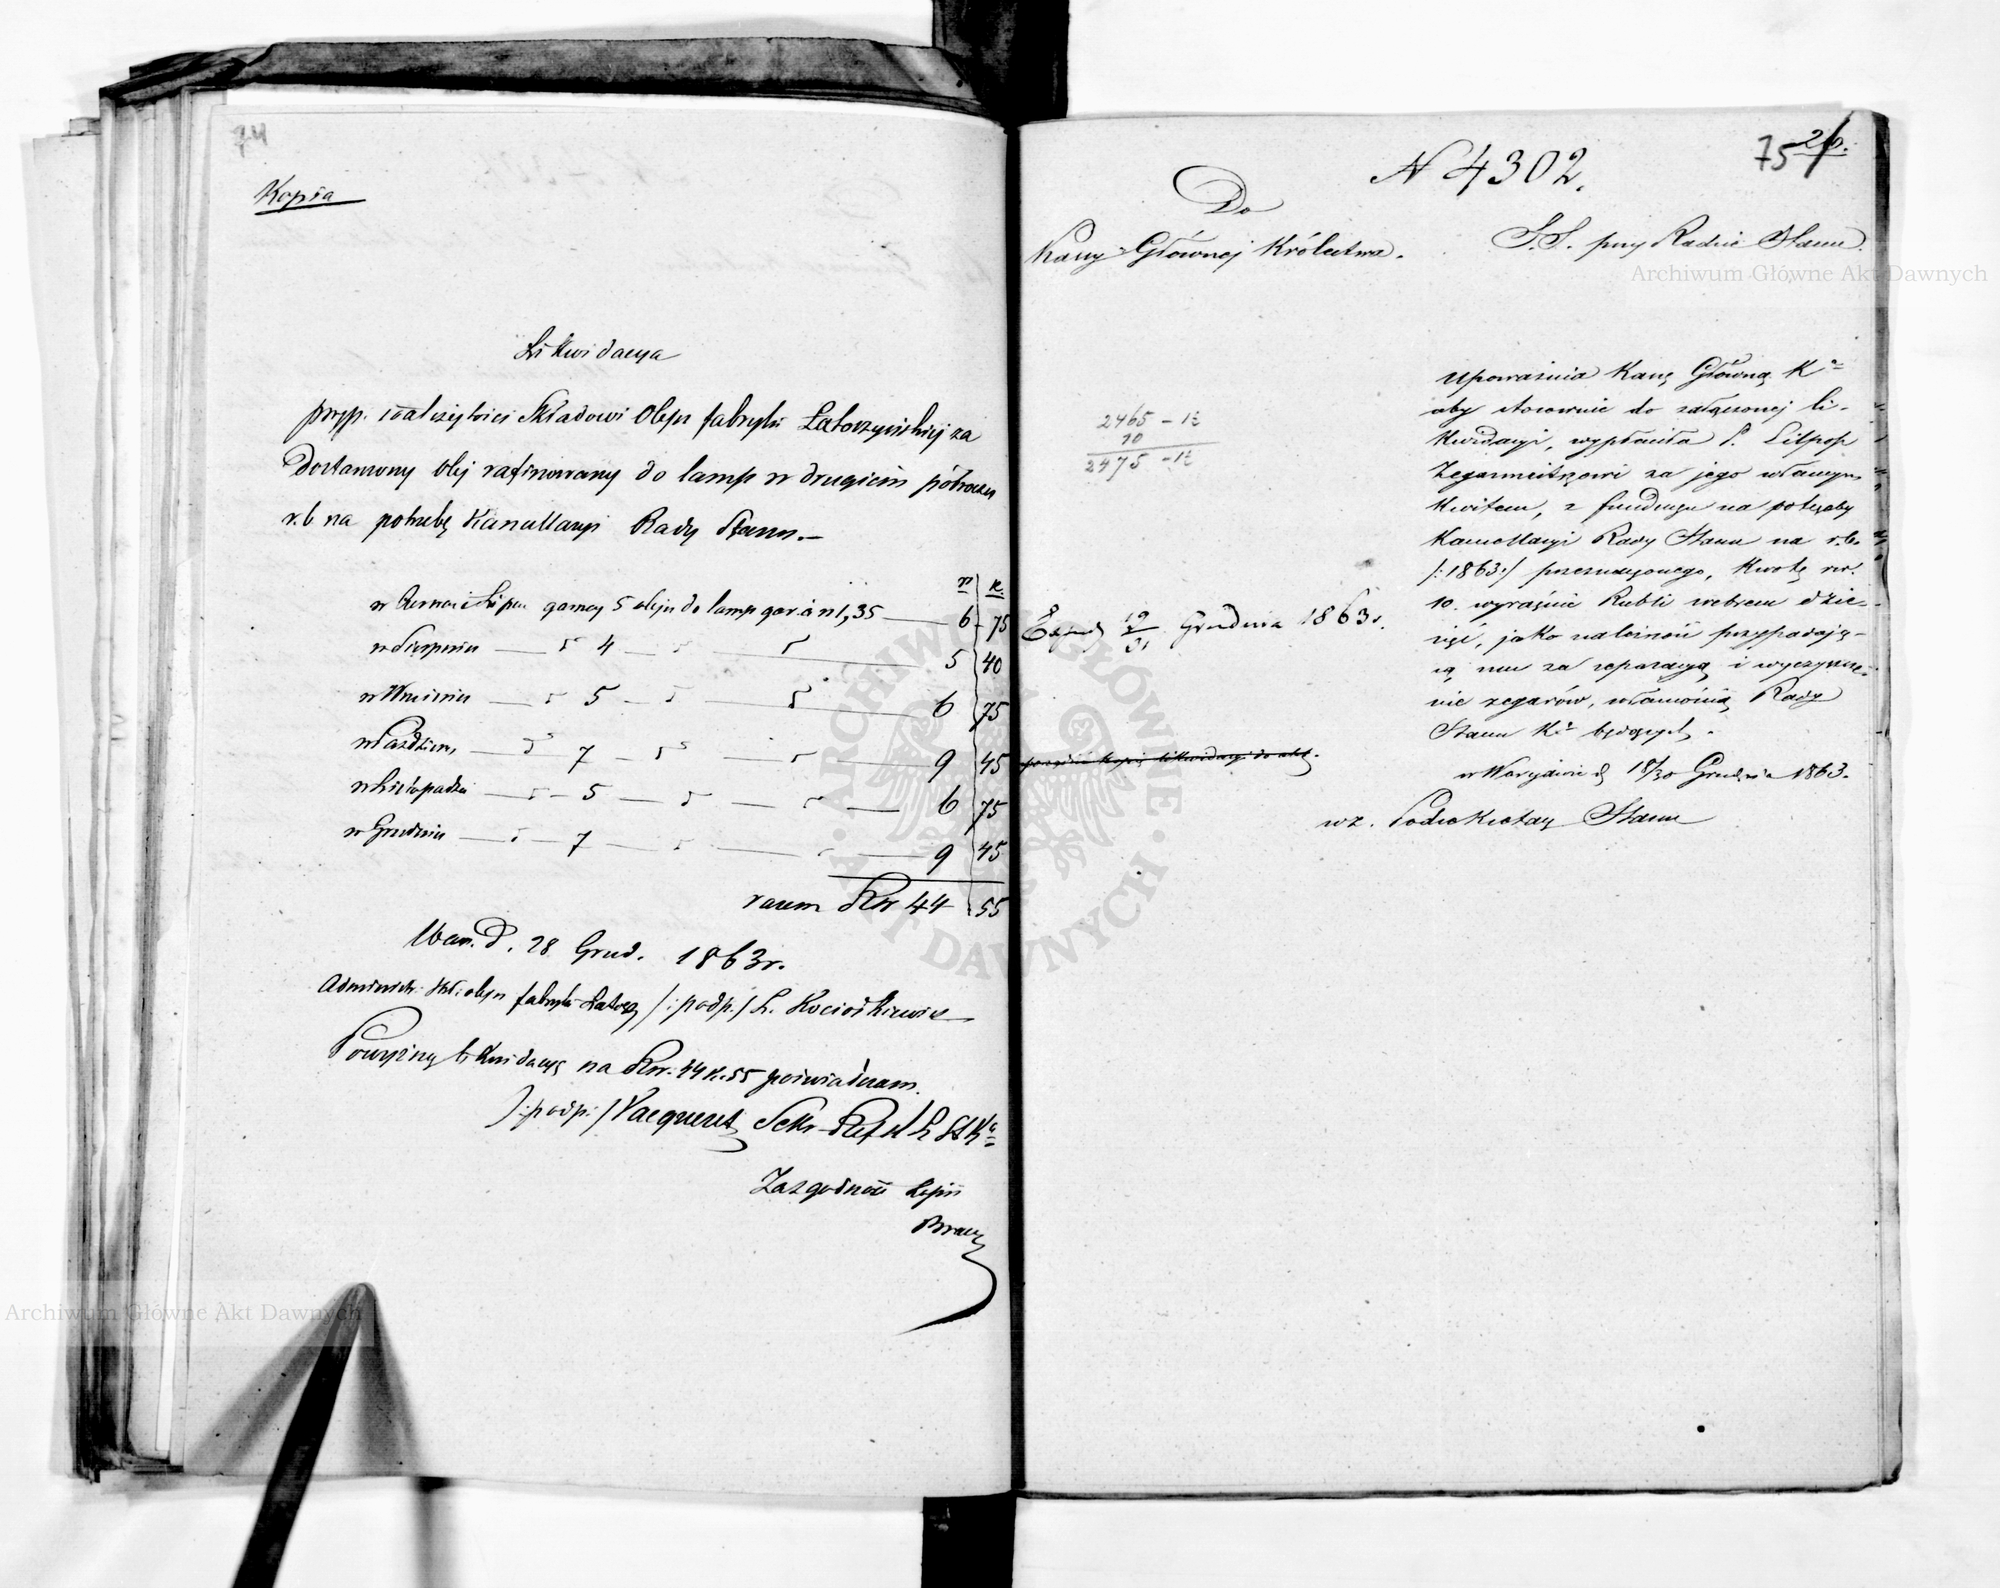 74
Kopia
Likwidacya
przyp. należytości Składowi Oleju fabryki Łatoszyńskiej za
Dostawiony olej rafinowany do lamp w drugiém półroczu
r. b na potrzebę Kancellaryi Rady Stanu.—
r k.
w Czerwcu i Lipcu garncy 5 oleju do lamp gar. à r 1,35 — 6 75
w Sierpniu — 4 — 5 40
w Wrześniu — 5 — 6 75
w Paździer. — 7 — 9 45
w Listopadzie — 5 — 6 75
w Grudniu — 7 — 9 45
razem Rsr 44 55
War. d. 28 Grud. 1863 r.
Administr. Skł: oleju fabryki Łatosz /:podp:/ L.
Powyższą likwidacyę na Rsr. 44 k. 55 poświadczam.
/:podp:/ Vacqueret Sekr
Za zgodność kopii
75 26.
N 4302.
Do
Kassy Głównej Królestwa.
S. S. przy Radzie Stanu.
Upoważnia Kassę Główną K
aby stosownie do załączonej li-
kwidacyi, wypłaciła P. Lilpop
Zegarmistrzowi za jego własnym
kwitem, z funduszu na potrzeby
Kancellaryi Rady Stanu na r. b.
/:1863:/ przeznaczonego, kwotę rsr.
10. wyraźnie Rubli srebrem dzie-
sięć, jako należność przypadają-
cą mu za reparacyą i wyczyszcze-
nie zegarów, własnością Rady
Stanu K. będących.
w Warszawie d 18/30 Grudnia 1863.
wz. Podsekretarz Stanu
2465 – 12
10
2475 – 12
19/31 Grudnia 1863 r.
kopię likwidacyi do akt.